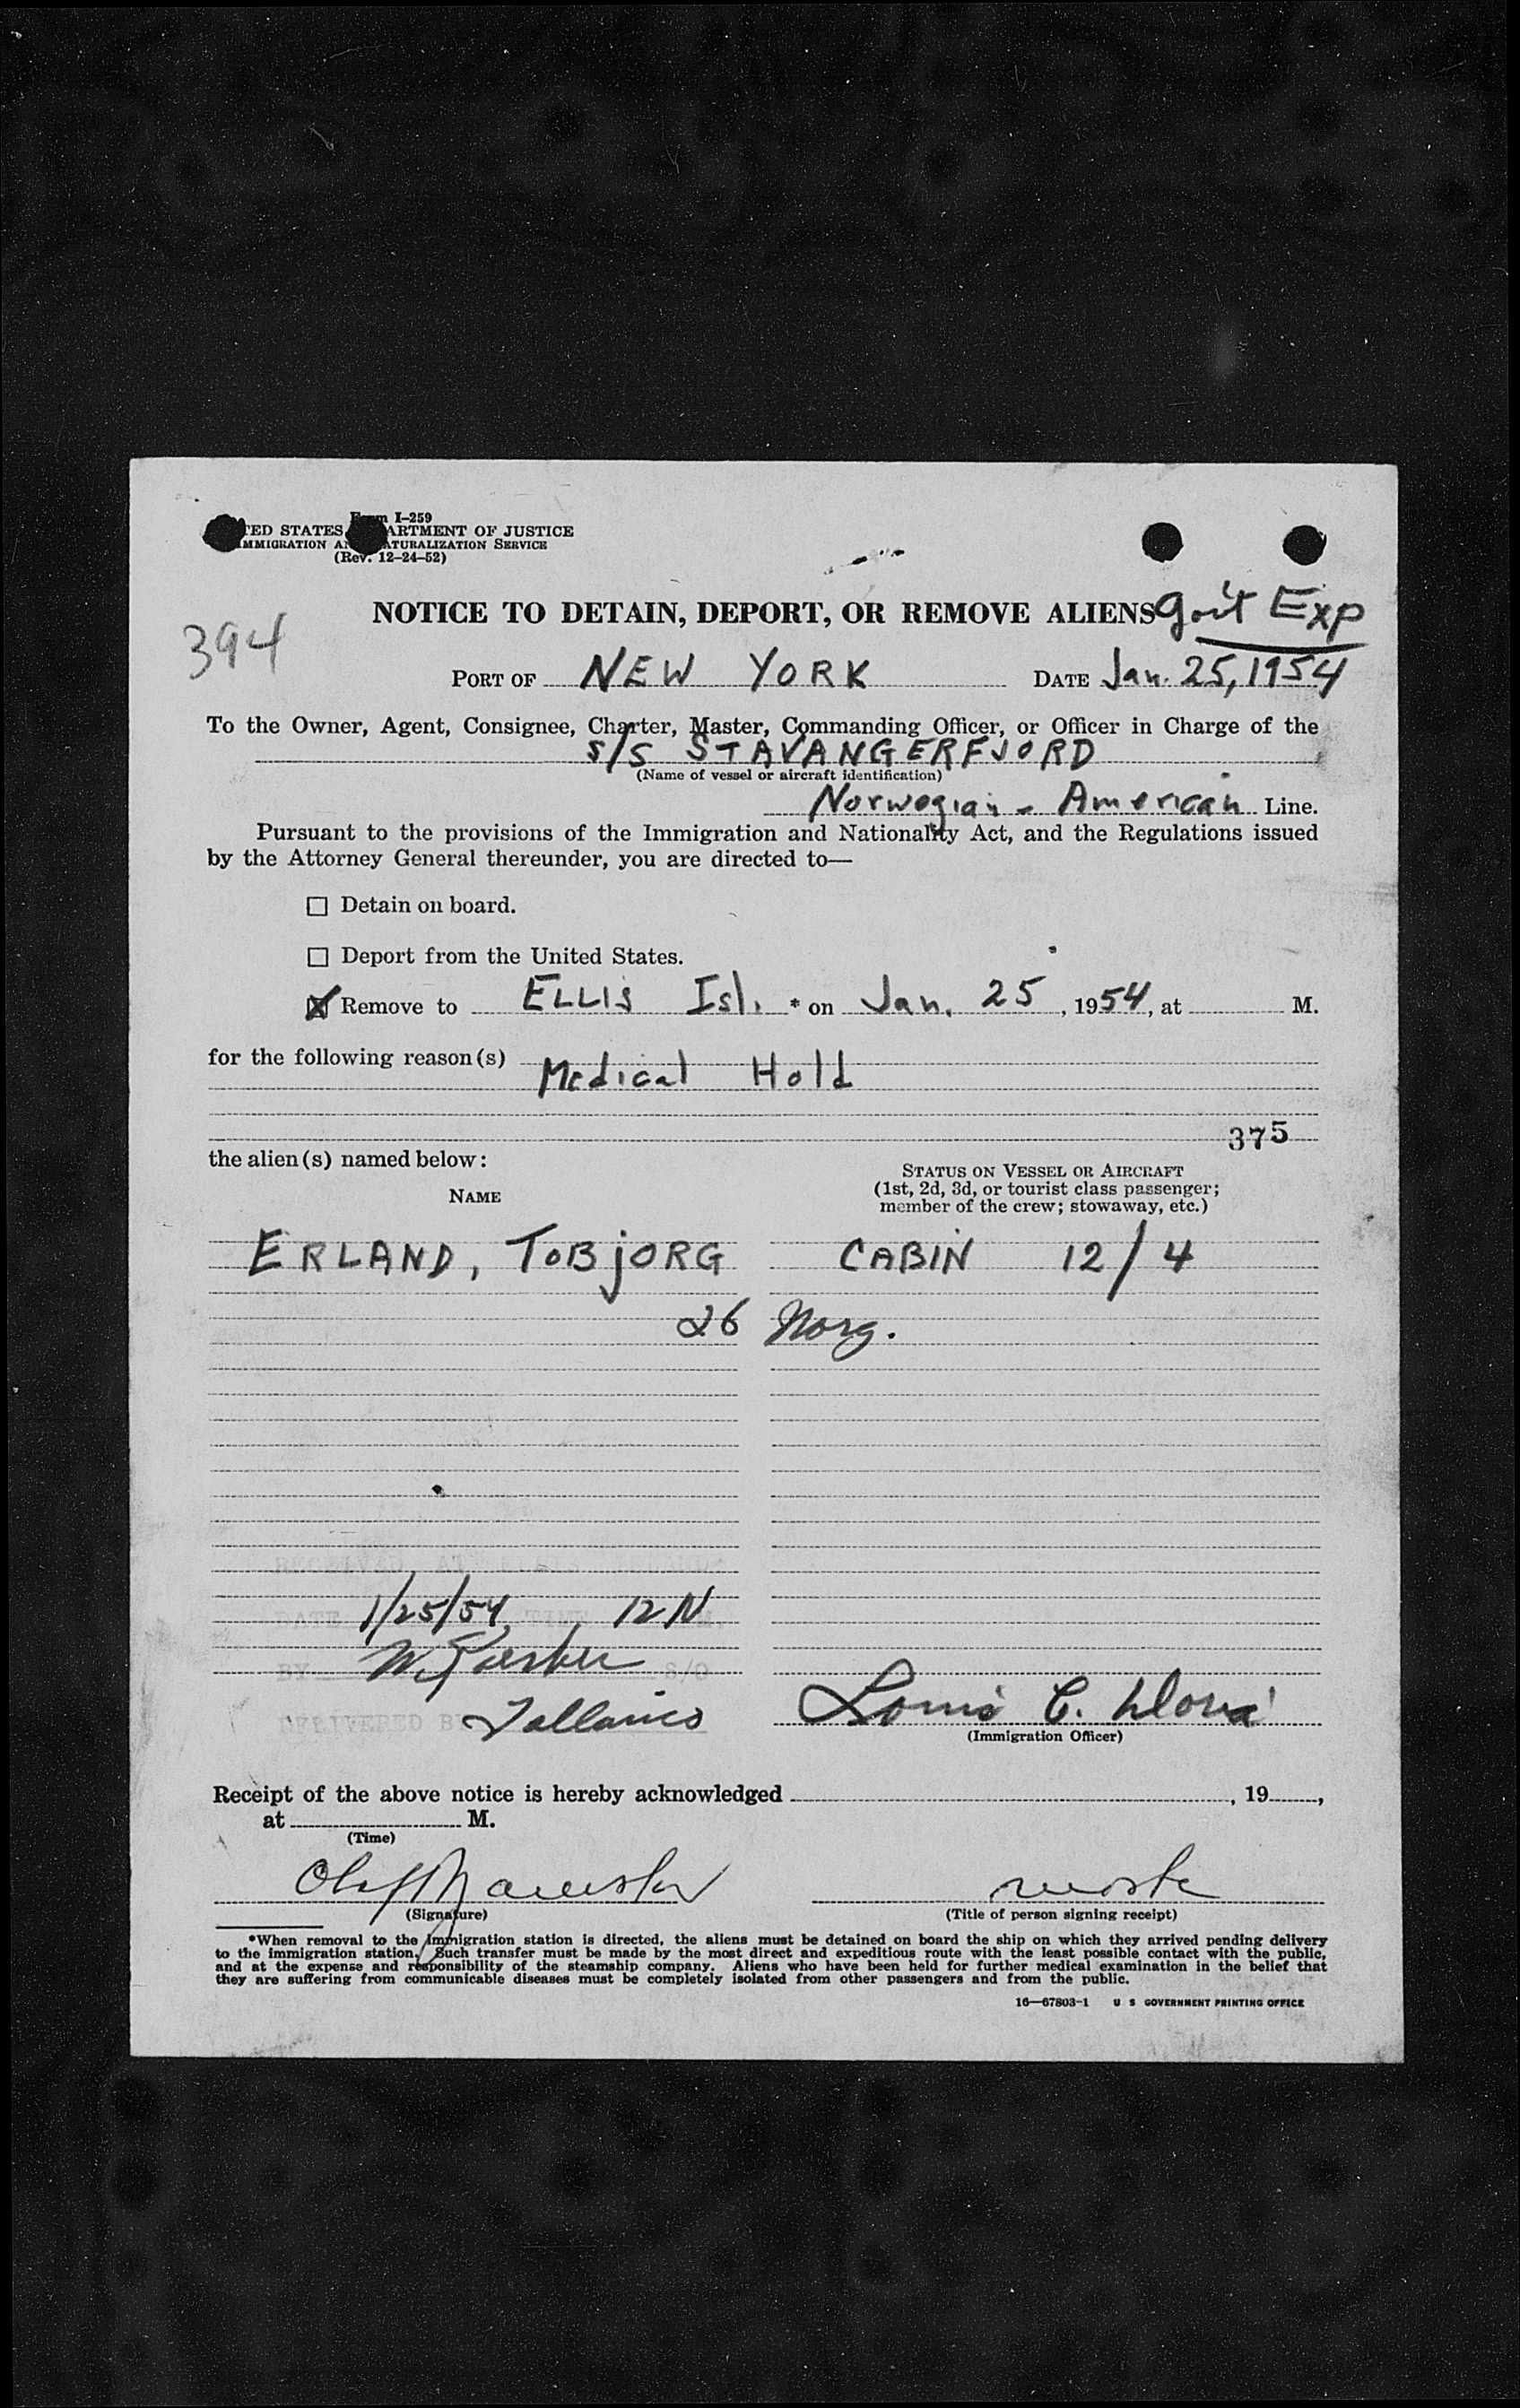 Form I-259
UNITED STATES DEPARTMENT OF JUSTICE
IMMIGRATION AND NATURALIZATION SERVICE
(Rev. 12-24-52)
NOTICE TO DETAIN, DEPORT, OR REMOVE ALIENS Gov't Exp
394
PORT OF NEW YORK DATE Jan. 25, 1954
To the Owner, Agent, Consignee, Charter, Master, Commanding Officer, or Officer in Charge of the
S/S STAVANGERFJORD
(Name of vessel or aircraft identification)
Norwegian - American Line.
Pursuant to the provisions of the Immigration and Nationality Act, and the Regulations issued
by the Attorney General thereunder, you are directed to—
Detain on board.
Deport from the United States.
Remove to ELLIS Isl. * on Jan. 25, 1954, at M.
for the following reason(s)
Medical Hold
375
the alien(s) named below:
NAME
STATUS ON VESSEL OR AIRCRAFT
(1st, 2d, 3d, or tourist class passenger;
member of the crew; stowaway, etc.)
ERLAND, TOBJORG CABIN 12/4
26 Norg.
RECEIVED AT ELLIS ISLAND
DATE 1/25/54 TIME 12 N
BY W. S/O
DELIVERED BY
Louis C.
(Immigration Officer)
Receipt of the above notice is hereby acknowledged , 19 ,
at M.
(Time)
Olaf
(Signature)
(Title of person signing receipt)
*When removal to the immigration station is directed, the aliens must be detained on board the ship on which they arrived pending delivery
to the immigration station. Such transfer must be made by the most direct and expeditious route with the least possible contact with the public,
and at the expense and responsibility of the steamship company. Aliens who have been held for further medical examination in the belief that
they are suffering from communicable diseases must be completely isolated from other passengers and from the public.
16—67803-1 U S GOVERNMENT PRINTING OFFICE